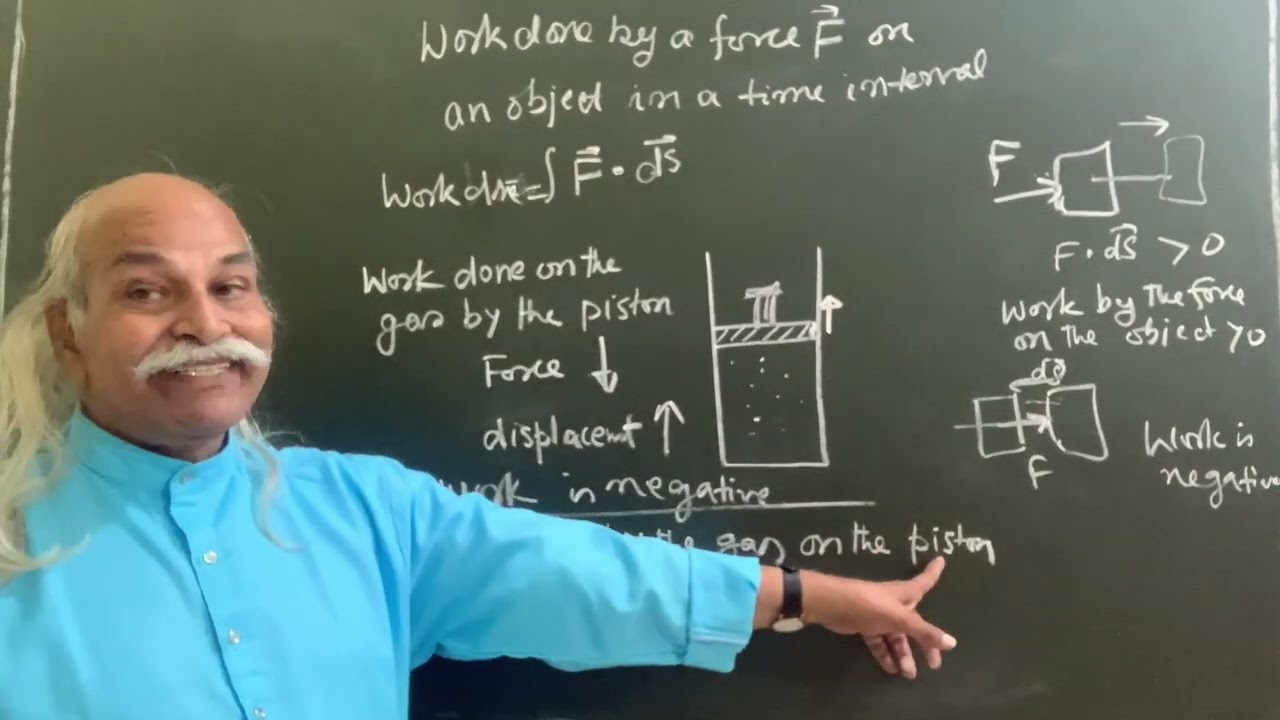 Work done by a force F⃗ on
an object in a time interval
Work done = ∫ F⃗ · d⃗s
Work done on the
gas by the piston
Force ↓
displacemt ↑
work is negative
the gas on the piston
F
F · d⃗s > 0
Work by The force
on The object > 0
ds
F
Work is
negative